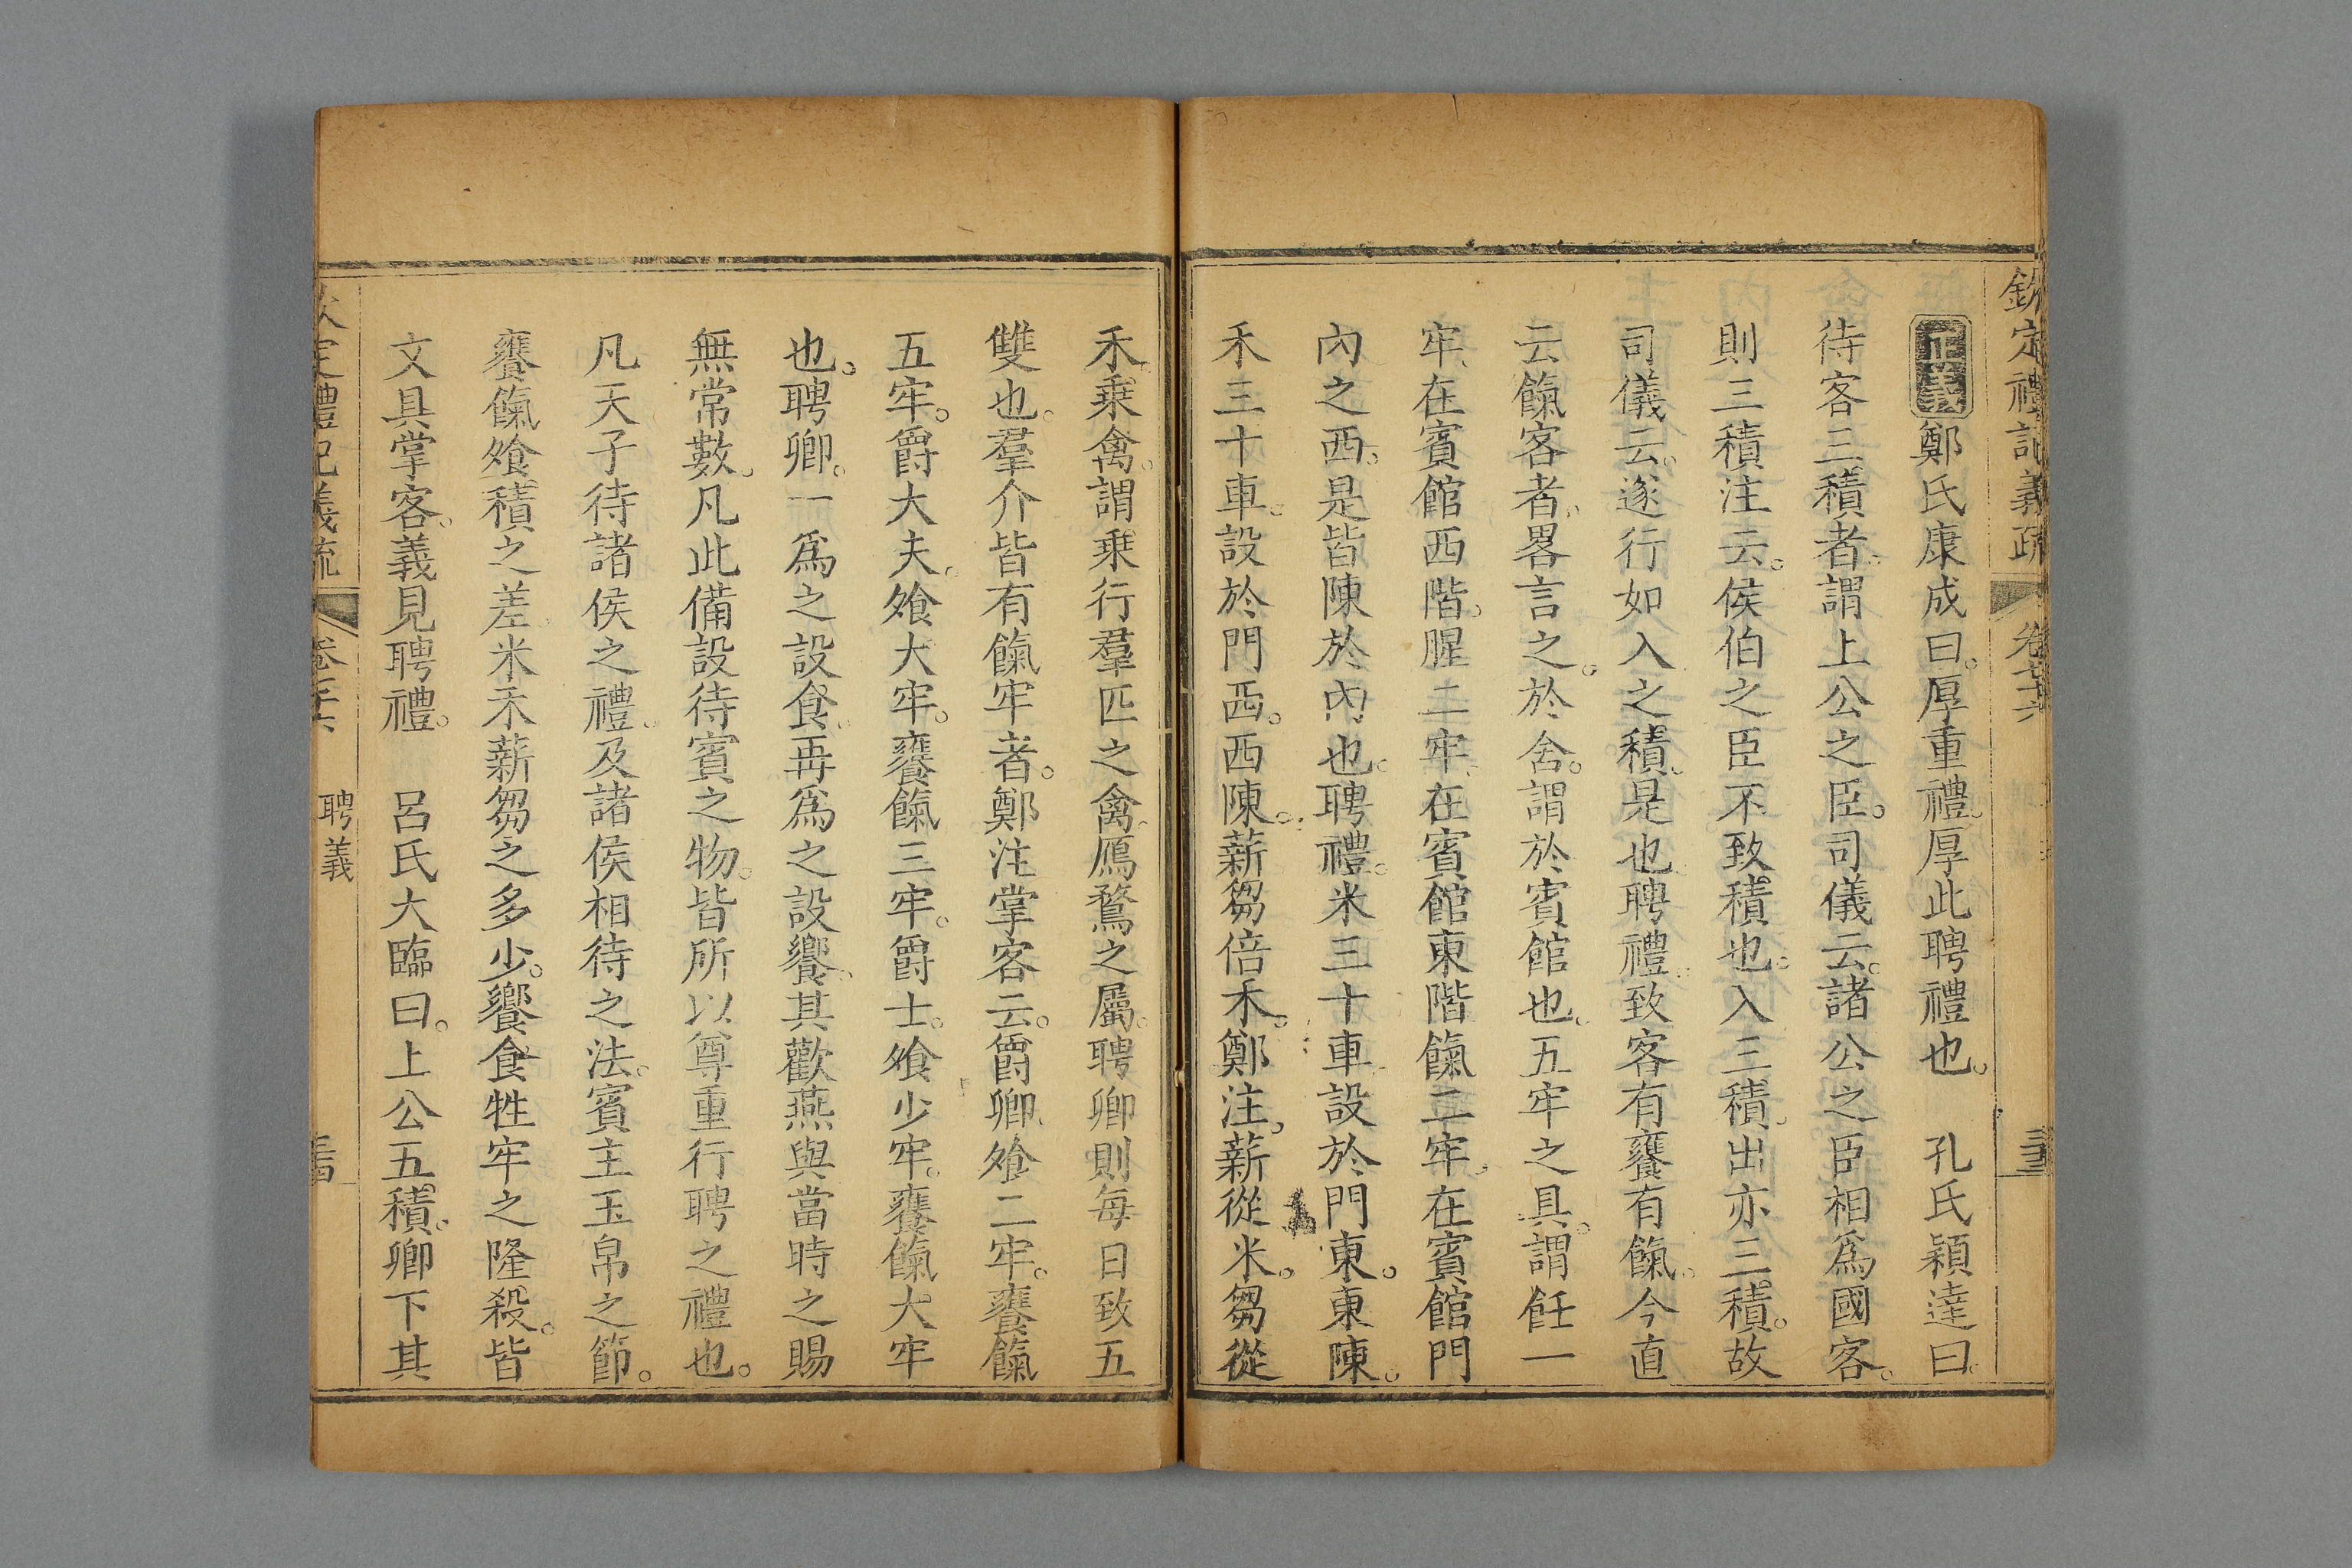 欽定禮記義疏 卷七十六
正義鄭氏康成曰。厚重禮。厚此聘禮也。 孔氏穎達曰。
待客三積者。謂上公之臣。司儀云。諸公之臣相爲國客。
則三積注云。侯伯之臣不致積也。入三積。出亦三積。故
司儀云。遂行如入之積。是也聘禮。致客有饔有餼。今直
云餼客者。畧言之。於舍。謂於賓館也。五牢之具。謂飪一
牢、在賓館西階。腥二牢、在賓館東階餼二牢、在賓館門
內之西。是皆陳於內也。聘禮。米三十車、設於門東。東陳。
禾三十車。設於門西。西陳。薪芻倍禾。鄭注。薪從米。芻從
禾。乗禽。謂乗行羣匹之禽。鴈鶩之屬。聘卿則每日致五
雙也。羣介皆有餼牢者。鄭注掌客云。爵卿、飧二牢。饔餼
五牢。爵大夫。飧大牢。饔餼三牢。爵士。飧少牢。饔餼大牢
也。聘卿。一爲之設食。再爲之設饗。其歡燕與當時之賜
無常數。凡此備設待賓之物。皆所以尊重行聘之禮也。
凡天子待諸侯之禮。及諸侯相待之法。賓主玉帛之節。
饔餼飧積之差。米禾薪芻之多少。饗食牲牢之隆殺。皆
文具掌客。義見聘禮。 呂氏大臨曰。上公五積。卿下其
定禮記義疏 卷七十六 聘義